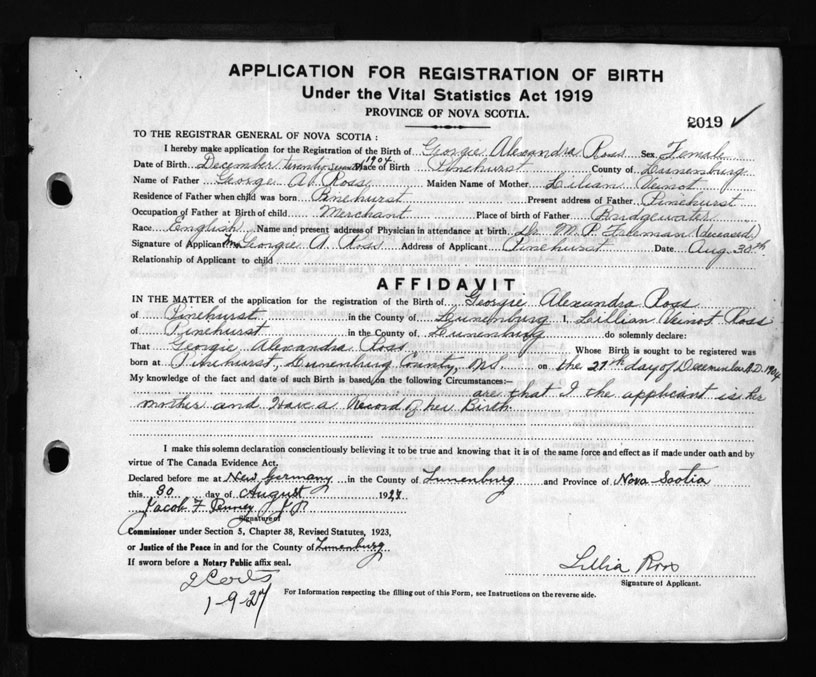 APPLICATION FOR REGISTRATION OF BIRTH
Under the Vital Statistics Act 1919
PROVINCE OF NOVA SCOTIA.
2019 ✓
TO THE REGISTRAR GENERAL OF NOVA SCOTIA:
I hereby make application for the Registration of the Birth of Georgie Alexandra Ross Sex Female
Date of Birth December twenty seventh 1904 Place of Birth Pinehurst County of Lunenburg
Name of Father George A. Ross Maiden Name of Mother Lilian Veinot
Residence of Father when child was born Pinehurst Present address of Father Pinehurst
Occupation of Father at Birth of child Merchant Place of birth of Father Bridgewater
Race English Name and present address of Physician in attendance at birth Dr. M. P. Freeman (deceased)
Signature of Applicant Mrs Georgie A. Ross Address of Applicant Pinehurst Date Aug 30th
Relationship of Applicant to child
AFFIDAVIT
IN THE MATTER of the application for the registration of the Birth of Georgie Alexandra Ross
of Pinehurst in the County of Lunenburg I, Lillian Veinot Ross
of Pinehurst in the County of Lunenburg do solemnly declare:
That Georgie Alexandra Ross Whose Birth is sought to be registered was
born at Pinehurst, Lunenburg County, N.S. on the 27th day of December A.D. 1904
My knowledge of the fact and date of such Birth is based on the following Circumstances:—
are that I the applicant is her
mother and Have a Record of her Birth
I make this solemn declaration conscientiously believing it to be true and knowing that it is of the same force and effect as if made under oath and by
virtue of The Canada Evidence Act.
Declared before me at New Germany in the County of Lunenburg and Province of Nova Scotia
this 30 day of August 1927
Jacob F Penney J.P.
Signature of
Commissioner under Section 5, Chapter 38, Revised Statutes, 1923,
or Justice of the Peace in and for the County of Lunenburg
If sworn before a Notary Public affix seal.
Lillia Ross
Signature of Applicant.
2 Certs
1-9-27
For Information respecting the filling out of this Form, see Instructions on the reverse side.